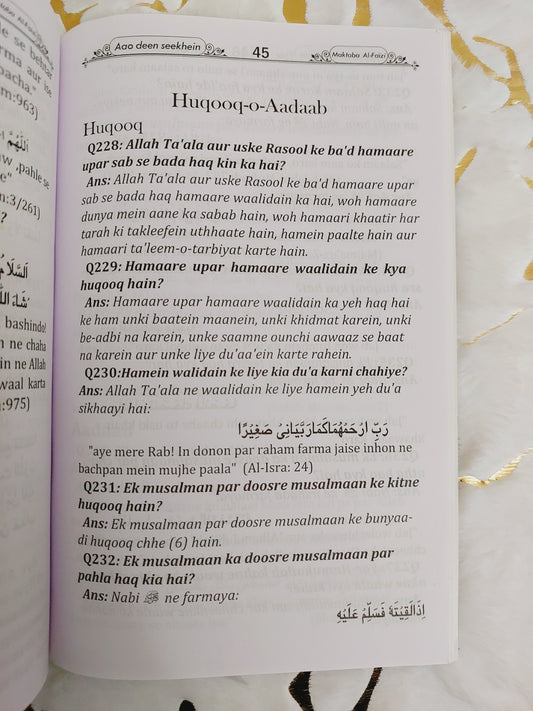 Maktaba Al-Fai
se behtar
arma aur ise
bacha."
m:963)
اَللّٰهُمَّ
, pahle se
"
m:3/261)
?
اَلسَّلَامُ
شَاءَ اللّٰ
bashindo!
n ne chaha
in ne Allah
waal karta
:975)
Aao deen seekhein
45
Maktaba Al-Faizi
Huqooq-o-Aadaab
Huqooq
Q228: Allah Ta'ala aur uske Rasool ke ba'd hamaare
upar sab se bada haq kin ka hai?
Ans: Allah Ta'ala aur uske Rasool ke ba'd hamaare upar
sab se bada haq hamaare waalidain ka hai, woh hamaare
dunya mein aane ka sabab hain, woh hamaari khaatir har
tarah ki takleefein uthhaate hain, hamein paalte hain aur
hamaari ta'leem-o-tarbiyat karte hain.
Q229: Hamaare upar hamaare waalidain ke kya
huqooq hain?
Ans: Hamaare upar hamaare waalidain ka yeh haq hai
ke ham unki baatein maanein, unki khidmat karein, unki
be-adbi na karein, unke saamne ounchi aawaaz se baat
na karein aur unke liye du'aa'ein karte rahein.
Q230:Hamein walidain ke liye kia du'a karni chahiye?
Ans: Allah Ta'ala ne waalidain ke liye hamein yeh du'a
sikhaayi hai:
رَبِّ ارْحَمْهُمَا كَمَا رَبَّيَانِىْ صَغِيْرًا
"aye mere Rab! In donon par raham farma jaise inhon ne
bachpan mein mujhe paala" (Al-Isra: 24)
Q231: Ek musalman par doosre musalmaan ke kitne
huqooq hain?
Ans: Ek musalmaan par doosre musalmaan ke bunyaa-
di huqooq chhe (6) hain.
Q232: Ek musalmaan ka doosre musalmaan par
pahla haq kia hai?
Ans: Nabi ﷺ ne farmaya:
اِذَا لَقِيْتَهٗ فَسَلِّمْ عَلَيْهِ